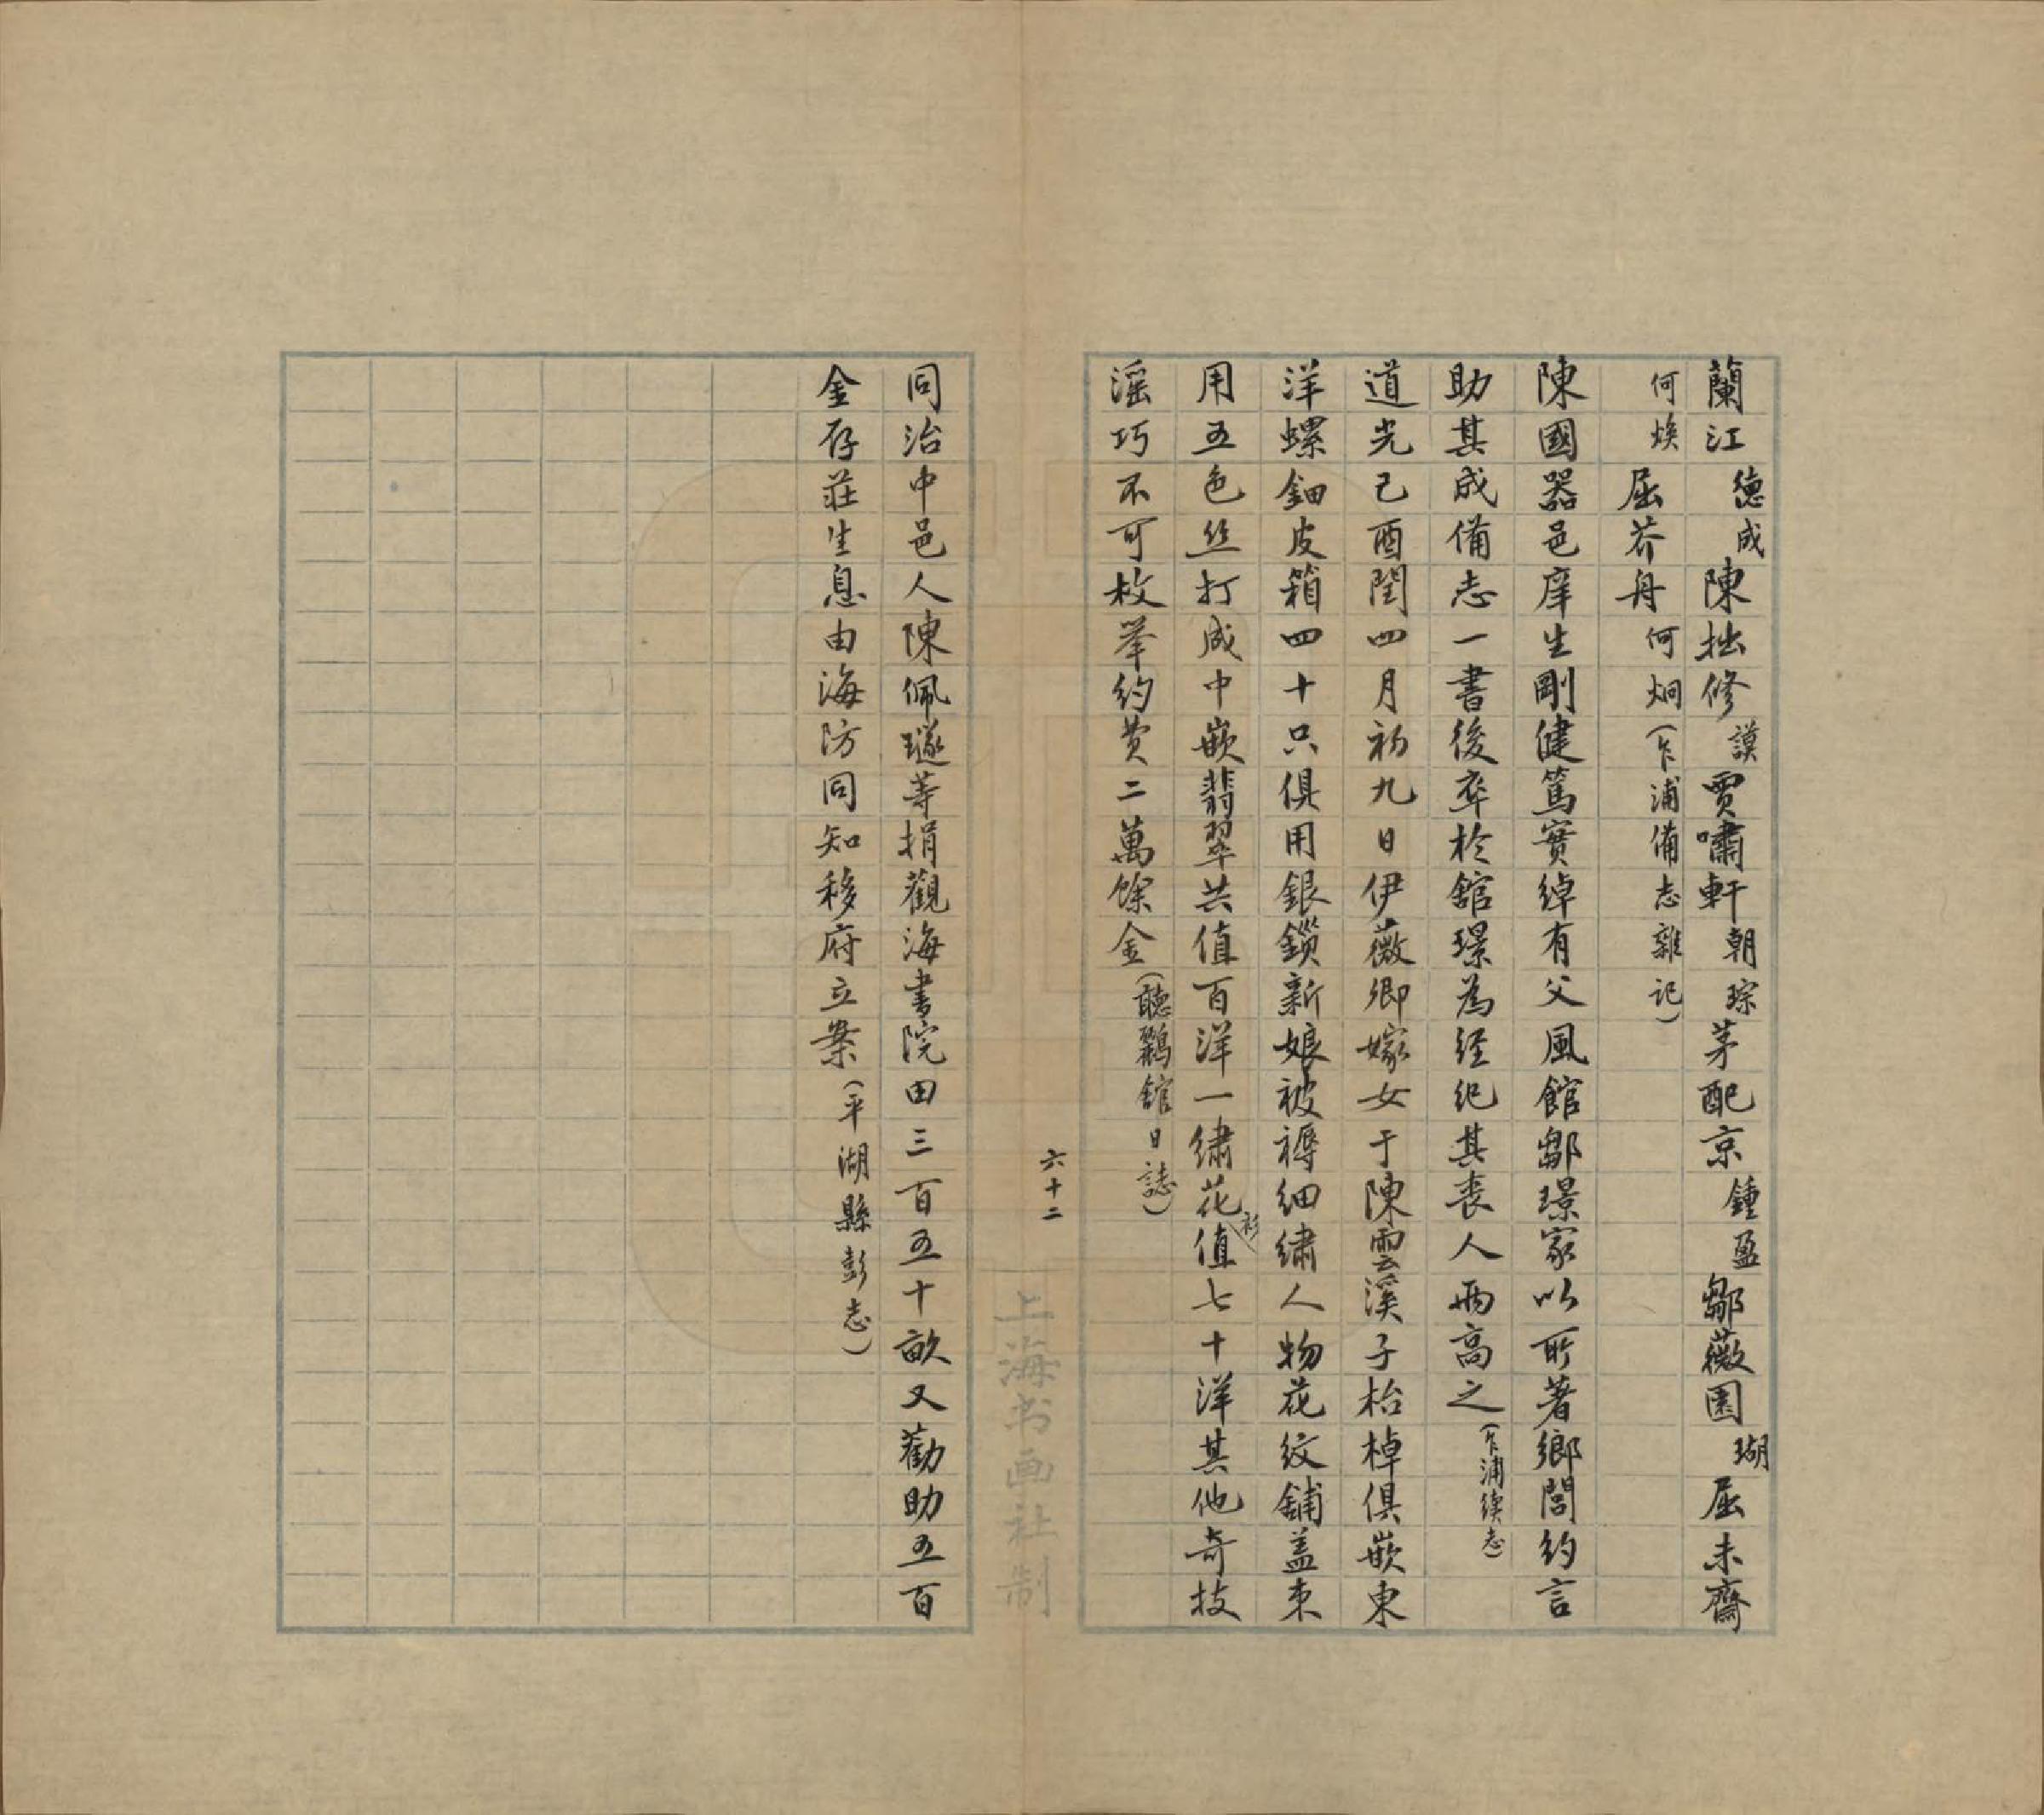 蘭江德成陳拙修謨賈嘯軒朝琮茅配京鍾盈鄒薇園瑚屈未齋
何煥屈芥舟何炯（乍浦備志雜記）
陳國器邑庠生剛健篤實綽有父風館鄒璟家以所著鄉閭約言
助其成備志一書後卒於舘璟為經纪其丧人两高之（乍浦续志）
道光己酉閏四月初九日伊薇卿嫁女于陳雲溪子枱棹俱嵌東
洋螺鈿皮箱四十只俱用銀鎖新娘被褥细繡人物花纹鋪盖束
用五色丝打成中嵌翡翠共值百洋一繡花衫值七十洋其他奇技
滛巧不可枚举约费二萬馀金（聽鸝舘日誌）
六十二
同治中邑人陳佩璲等捐觀海書院田三百五十畝又勸助五百
金存莊生息由海防同知移府立案（平湖縣彭志）
上海书画社制